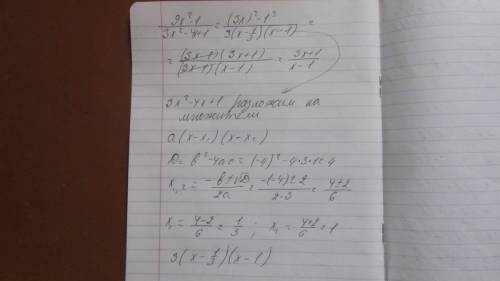 (9x²-1)/(3x²-4x+1) = ((3x)²-1²)/(3(x-1/3)(x-1)) =
= ((3x-1)(3x+1))/((3x-1)(x-1)) = (3x+1)/(x-1)
3x²-4x+1 разложим на
множители
a(x-x₁)(x-x₂)
D = b²-4ac = (-4)²-4·3·1=4
x₁,₂ = (-b±√D)/2a = (-(-4)±2)/(2·3) = (4±2)/6
x₁ = (4-2)/6 = 1/3 ; x₂ = (4+2)/6 = 1
3(x-1/3)(x-1)